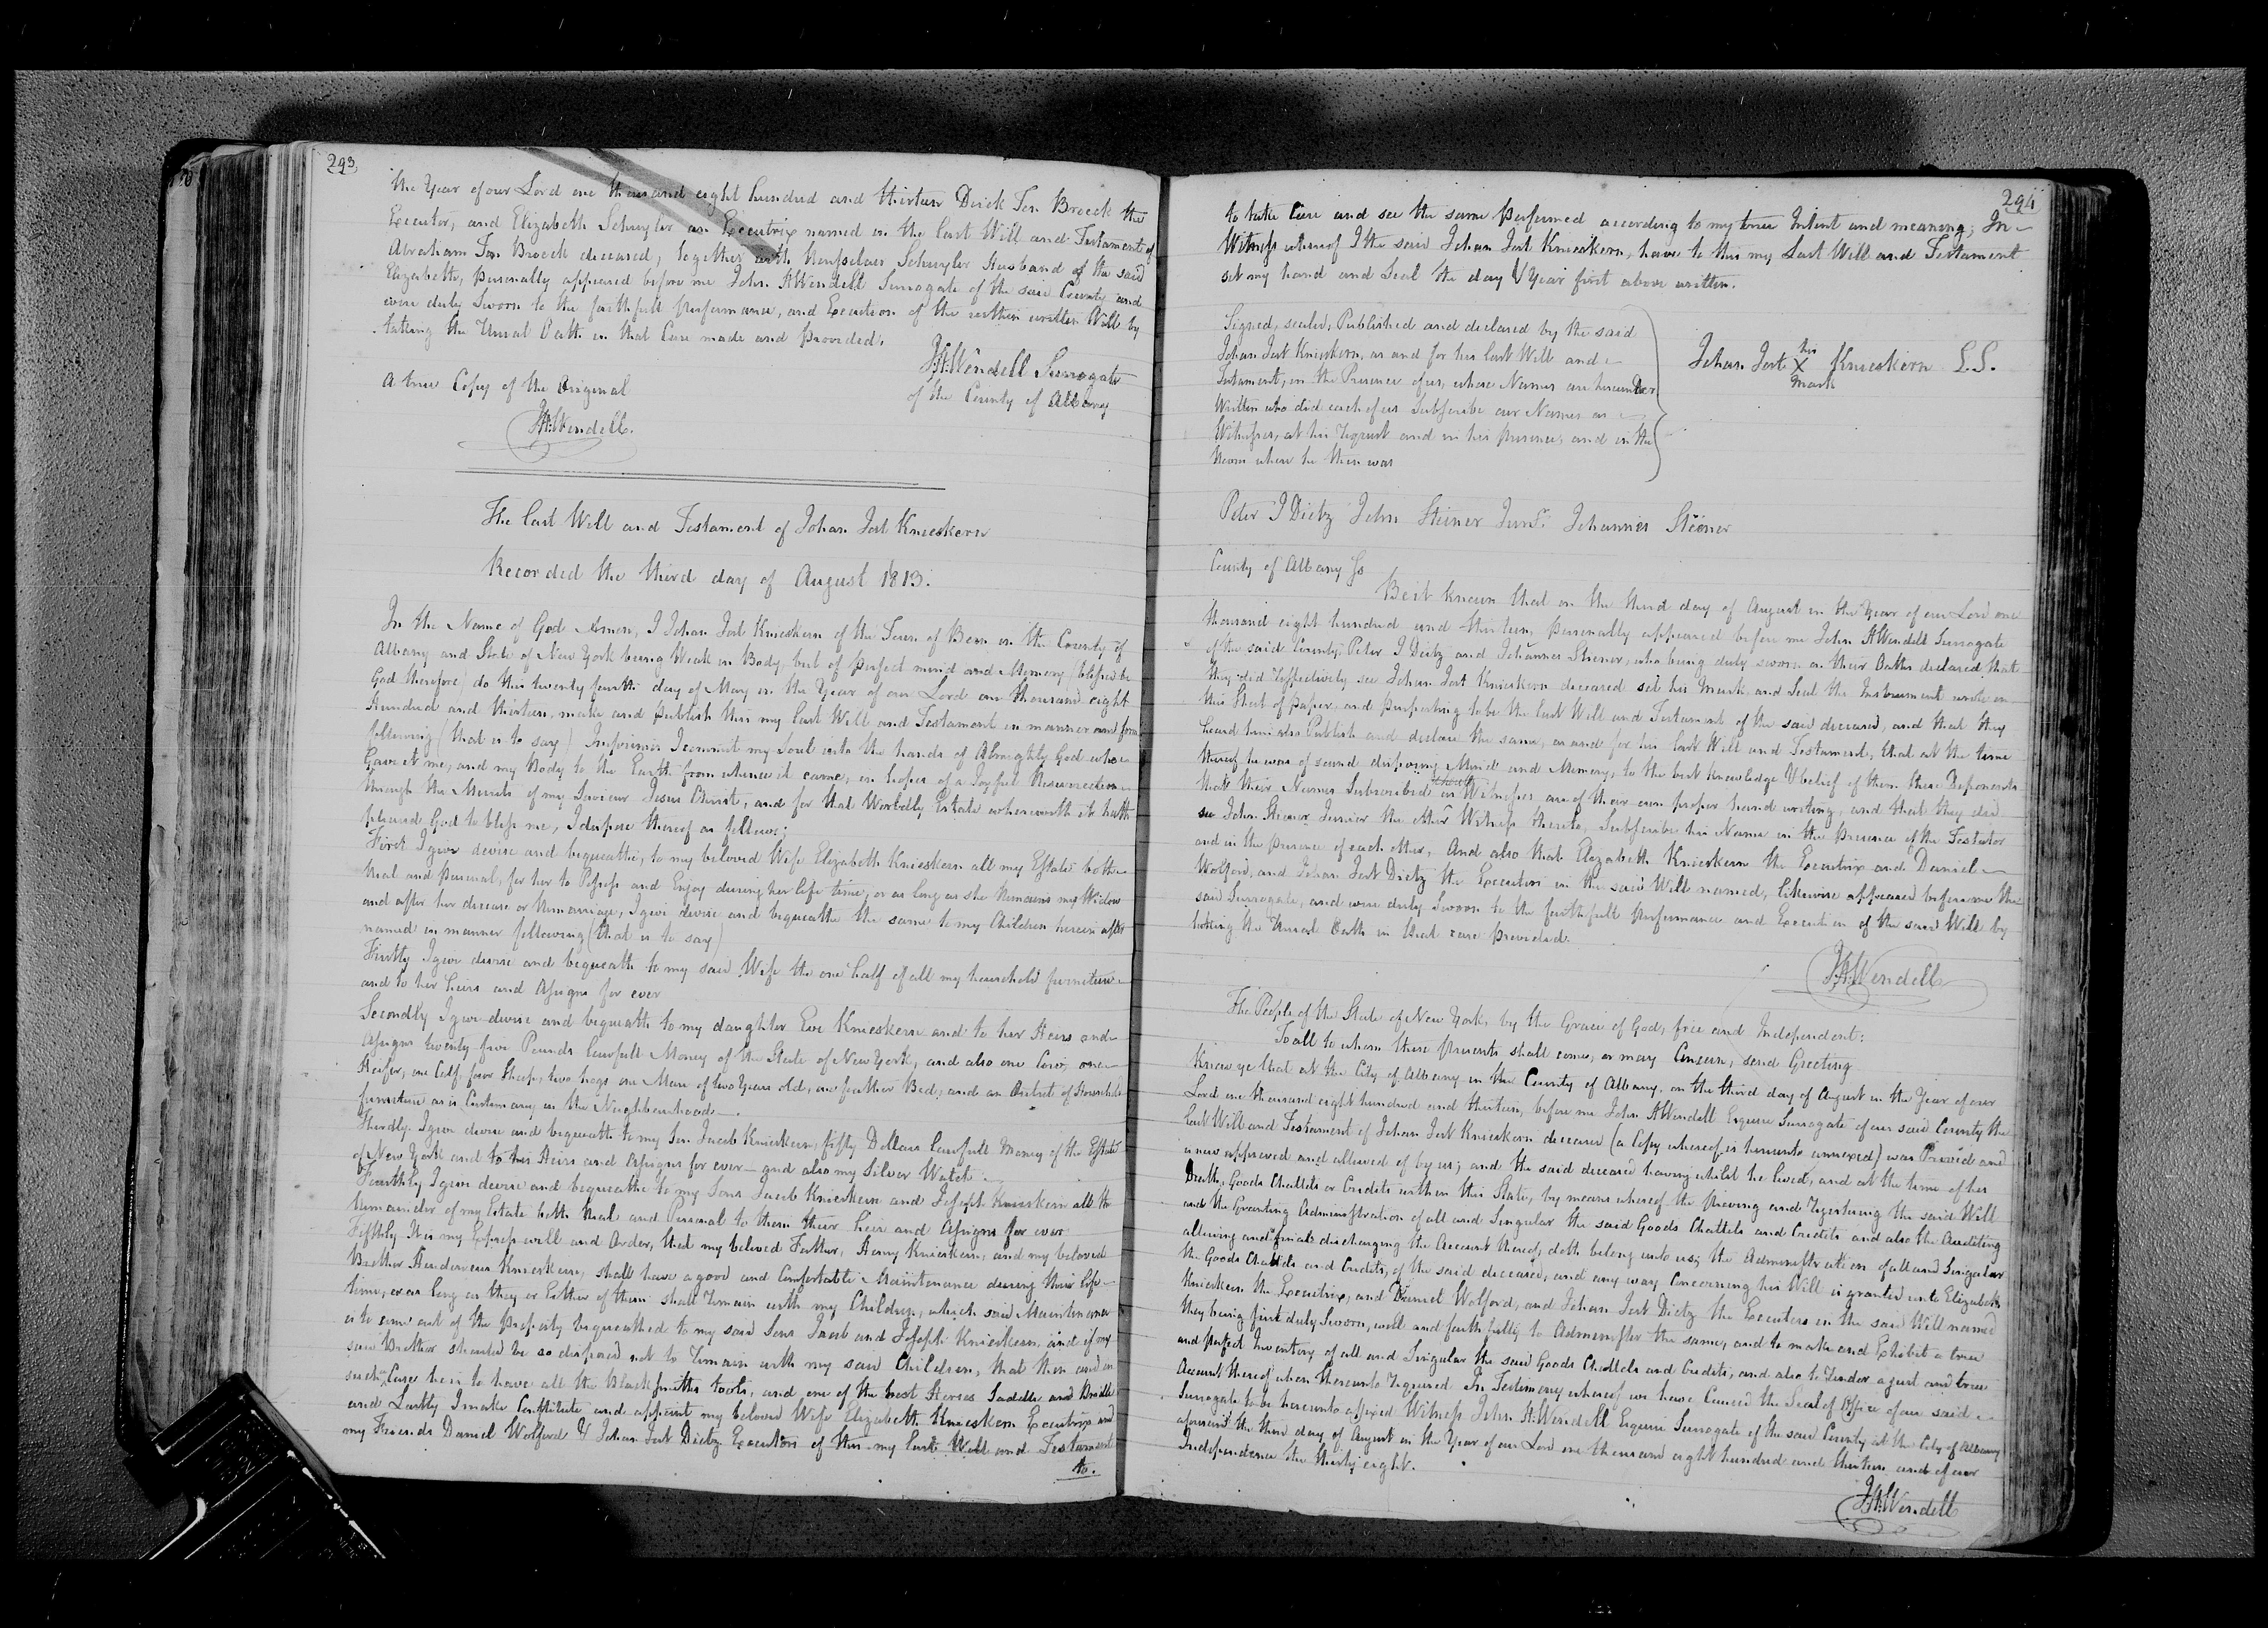 293
the Year of our Lord one thousand eight hundred and thirteen Dirck Ten Broeck the
Executor, and Elizabeth Schuyler an Executrix named in the last Will and Testament of
Abraham Ten Broeck deceased, together with Ranselaer Schuyler Husband of the said
Elizabeth, personally appeared before me John H Wendell Surrogate of the said County and
were duly Sworn to the faithfull performance, and Execution of the within written Will by
taking the Usual Oath in that Case made and provided.
J.H. Wendell Surrogate
of the County of Albany
A true Copy of the Original
J.H. Wendell.
The last Will and Testament of Johan Jost Knieskern
Recorded the third day of August 1813.
In the Name of God Amen, I Johan Jost Knieskern of the Town of Bern in the County of
Albany and State of New York being Weak in Body, but of perfect mind and Memory (blessed be
God therefore) do this twenty fourth day of May in the Year of our Lord one thousand eight
Hundred and thirteen, make and publish this my last Will and Testament in manner and form
following (that is to say) Imprimis I commit my Soul into the hands of Almighty God who
Gave it me, and my Body to the Earth from whence it came, in hopes of a Joyful Resurrection
through the Merits of my Saviour Jesus Christ, and for that Worldly Estate wherewith it hath
pleased God to bless me, I dispose thereof as follows;
First I give devise and bequeath, to my beloved Wife Elizabeth Knieskern all my Estate both
Real and personal, for her to Possess and Enjoy during her life time, or as long as she Remains my Widow
and after her decease or Remarriage, I give devise and bequeathe the same to my Children herein after
named in manner following (that is to say)
Firstly I give devise and bequeath to my said Wife the one half of all my household furniture
and to her heirs and Assigns for ever
Secondly I give devise and bequeath to my daughter Eve Knieskern and to her Heirs and
Assigns twenty five Pounds lawfull Money of the State of New York, and also one Cow, one
Heifer, one Calf, four Sheep, two hogs one Mare of two Years old, one feather Bed, and an Outset of Household
furniture as is Customary in the Neighbourhood
Thirdly I give devise and bequeath to my Son Jacob Knieskern, fifty Dollars lawfull Money of the Estate
of New York and to his Heirs and Assigns for ever - and also my Silver Watch.
Fourthly I give devise and bequeathe to my Sons Jacob Knieskern and Joseph Knieskern all the
Remainder of my Estate both Real and Personal to them their heirs and Assigns for ever
Fifthly It is my Express will and Order, that my beloved Father, Henry Knieskern, and my beloved
Brother Knieskern, shall have a good and Comfortable Maintenance during their life
time, or as long as they or Either of them shall Remain with my Children, which said Maintenance
is to come out of the property bequeathed to my said Sons Jacob and Joseph Knieskern, and if my
said Brother should be so disposed not to Remain with my said Children, that then and in
such Case he is to have all the Blacksmiths tools, and one of the best Horses Saddle and Bridle
and Lastly I make Constitute and appoint my beloved Wife Elizabeth Knieskern Executrix and
my Friends Daniel Wolford & Johan Jost Dietz Executors of this my last Will and Testament
to.
294
to take Care and see the same performed according to my true Intent and meaning; In
Witness whereof I the said Johan Jost Knieskern, have to this my Last Will and Testament
set my hand and Seal the day & Year first above written.
Signed, sealed, Published and declared by the said
Johan Jost Knieskern, as and for his last Will and
Testament, in the Presence of us, whose Names are hereunder
Written who did each of us Subscribe our Names as
Witnesses, at his request and in his presence, and in the
Room where he then was
Johan Jost his X mark Knieskern L.S.
Peter I Dietz John Steiner Junr. Johannes Steiner
County of Albany Ss
Be it known that on the third day of August in the Year of our Lord one
thousand eight hundred and thirteen, personally appeared before me John H Wendell Surrogate
of the said County, Peter I Dietz and Johannes Steiner, who being duly sworn on their Oaths declared that
they did respectively see Johan Jost Knieskern deceased set his Mark and Seal the Instrument wrote on
this Sheet of paper, and purporting to be the last Will and Testament of the said deceased, and that they
heard him also Publish and declare the same, as and for his last Will and Testament, that at the time
thereof he was of sound disposing Mind and Memory, to the best knowledge & belief of them these Deponents
that their Names Subscribed as Witnesses are of their own proper hand writing, and that they did
see John Steiner Junior the other Witness thereto, Subscribe his Name in the presence of the Testator
and in the presence of each other, And also that Elizabeth Knieskern the Executrix and Daniel
Wolford, and Johan Jost Dietz the Executors in the said Will named, likewise appeared before me the
said Surrogate, and were duly Sworn to the faithfull performance and Execution of the said Will by
taking the Usual Oath in that case provided.
J.H. Wendell
The People of the State of New York, by the Grace of God, free and Independent:
To all to whom these presents shall come, or may Concern, send Greeting
Know ye that at the City of Albany in the County of Albany, on the third day of August in the Year of our
Lord one thousand eight hundred and thirteen, before me John H Wendell Esquire Surrogate of our said County the
last Will and Testament of Johan Jost Knieskern deceased (a Copy whereof is hereunto annexed) was Proved and
is now approved and allowed of by us; and the said deceased having whilst he lived, and at the time of his
Death, Goods Chattels or Credits within this State, by means whereof the proving and registering the said Will
and the Granting Administration of all and Singular the said Goods Chattels and Credits and also the Auditing
allowing and finals discharging the Account thereof, doth belong unto us; the Administration of all and Singular
the Goods Chattels and Credits, of the said deceased, and any way Concerning his Will is granted unto Elizabeth
Knieskern the Executrix, and Daniel Wolford, and Johan Jost Dietz the Executors in the said Will named
they being first duly Sworn, well and faithfully to Administer the same, and to make and Exhibit a true
and perfect Inventory of all and Singular the said Goods Chattels and Credits, and also to render a just and true
Account thereof when thereunto required In Testimony whereof we have Caused the Seal of Office of our said
Surrogate to be hereunto affixed Witness John H. Wendell Esquire Surrogate of the said County at the City of Albany
aforesaid the third day of August in the Year of our Lord one thousand eight hundred and thirteen and of our
Independence the thirty eight.
J.H. Wendell